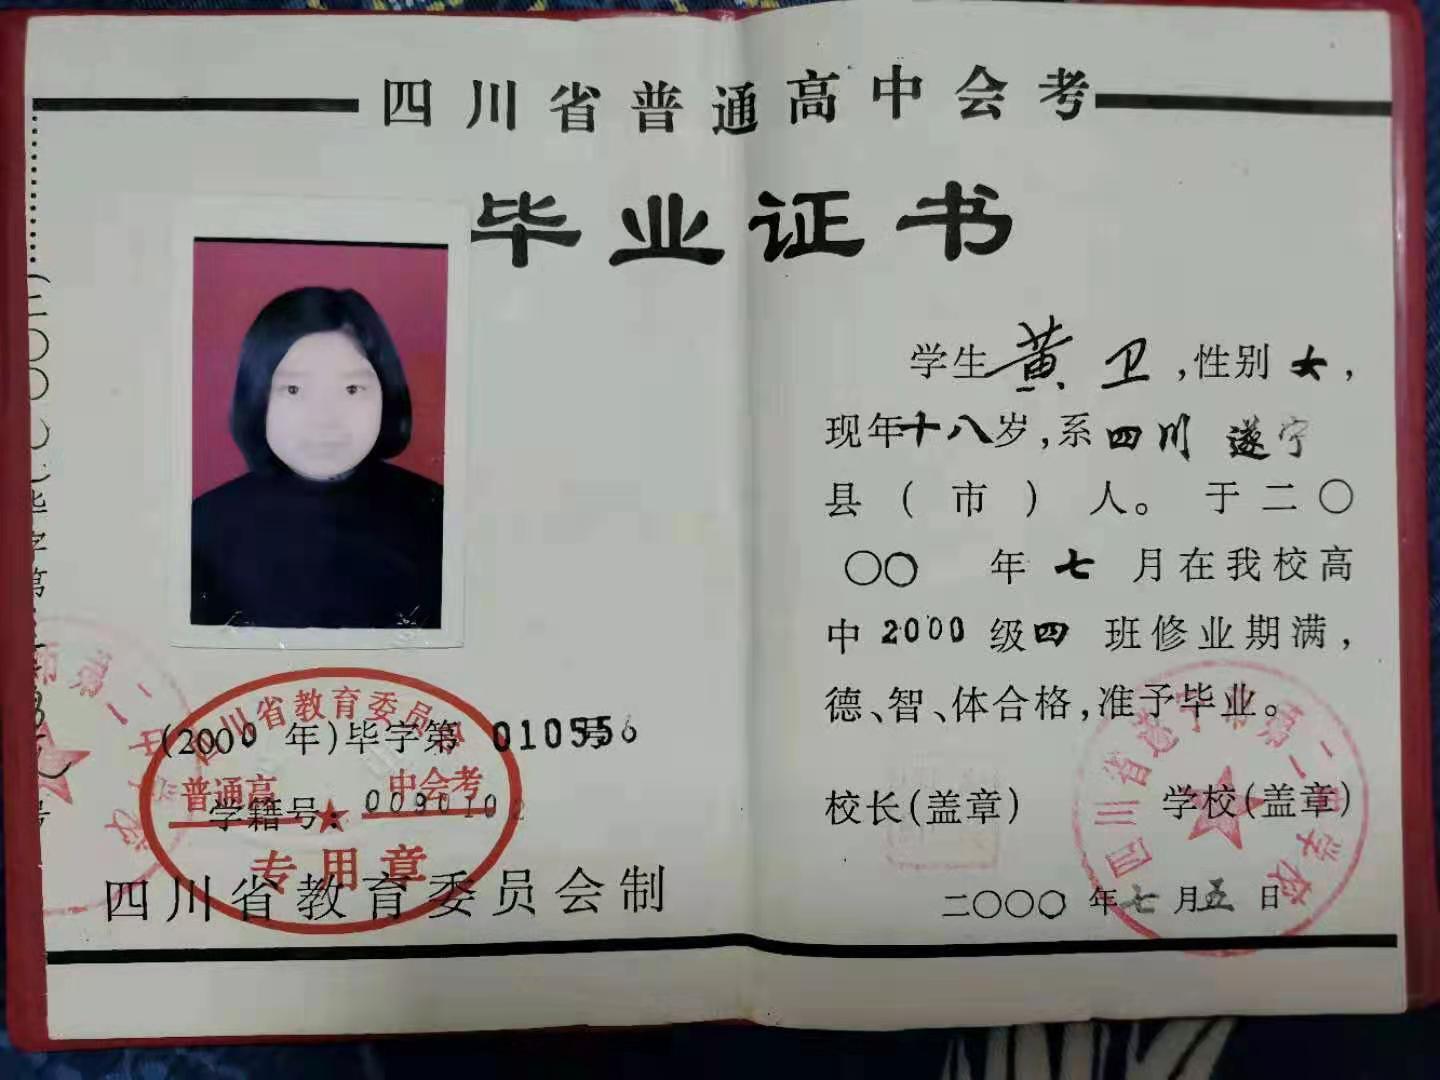 四川省普通高中会考
毕业证书
学生黄卫,性别女,
现年十八岁,系四川遂宁
县(市)人。于二〇
〇〇年七月在我校高
中2000级四班修业期满,
德、智、体合格,准予毕业。
校长(盖章) 学校(盖章)
二〇〇〇年七月五日
(2000年)毕字第010556号
学籍号:
四川省教育委员会制
四川省教育委员会
普通高中会考
专用章
四川省遂宁市第二中学校